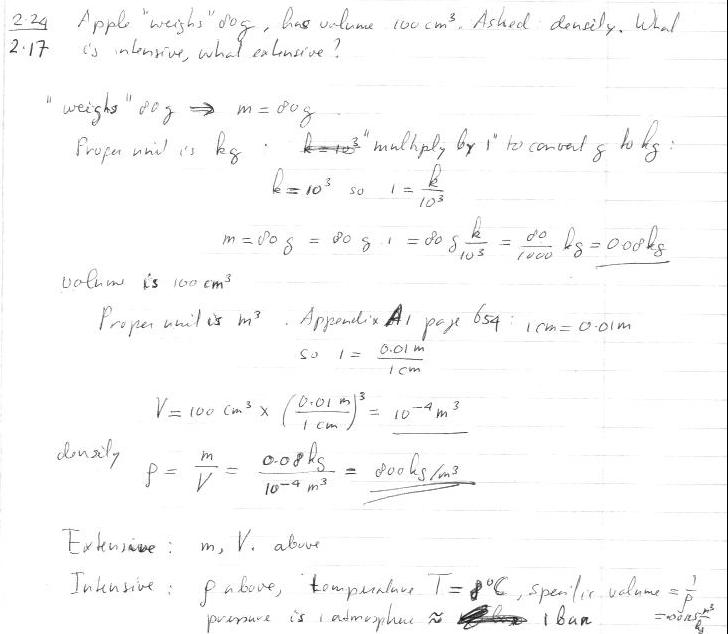 2.24 Apple "weighs" 80 g, has volume 100 cm³. Asked density. What
2.17 is intensive, what extensive?
"weighs" 80 g ⇒ m = 80 g
Proper unit is kg. "multiply by 1" to convert g to kg:
k = 10³ so 1 = k/10³
m = 80 g = 80 g · 1 = 80 g k/10³ = 80/1000 kg = 0.08 kg
volume is 100 cm³
Proper unit is m³. Appendix A1 page 654: 1 cm = 0.01 m
so 1 = 0.01 m / 1 cm
V = 100 cm³ × (0.01 m / 1 cm)³ = 10⁻⁴ m³
density ρ = m/V = 0.08 kg / 10⁻⁴ m³ = 800 kg/m³
Extensive: m, V. above
Intensive: ρ above, temperature T = 8°C, specific volume = 1/ρ
pressure is 1 atmosphere ≈ 1 bar = .00125 m³/kg